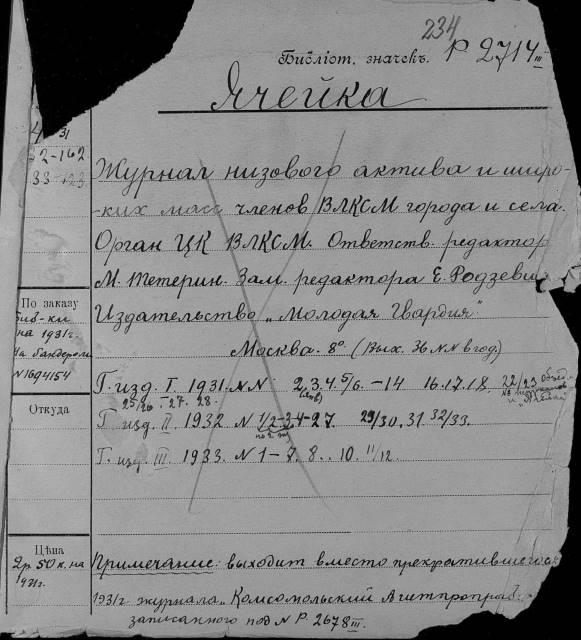 234
Библіот. значекъ. Р 2714 III
Ячейка
31
32-162
33-123
Журнал низового актива и широ-
-ких масс членов ВЛКСМ города и села.
Орган ЦК ВЛКСМ. Ответств. редактор
М. Тетерин. Зам. редактора Е. Родзевич
По заказу
Издательство „Молодая Гвардия"
на 1931г.
Москва. 8° (Вых. 36 NN в год.)
На бандероли
N 1694154
Г. изд. I. 1931. NN. 2, 3, 4, 5/6. -14 16. 17. 18. 22/23
25/26. 27. 28.
Откуда
Г. изд. II. 1932 N 1/2-3. 4-27. 29/30. 31 32/33.
Г. изд. III. 1933. N 1-7. 8.. 10. 11/12.
Цѣна
2р. 50 к. на
Примечание: выходит вместо прекратившегося
1931г. журнала „Комсомольский Агитпроправ
записанного под N Р. 2678 III.